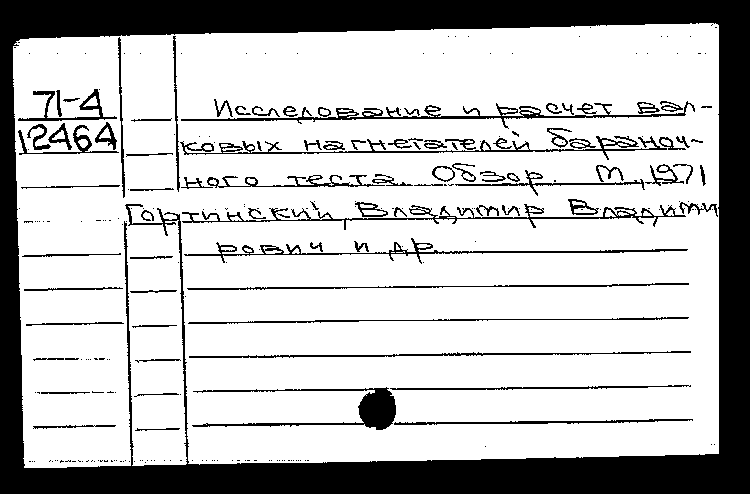 71-4
12464
Исследование и расчет вал-
ковых нагнетателей бараноч-
ного теста. Обзор. М., 1971
Гортинский, Владимир Владими
рович и др